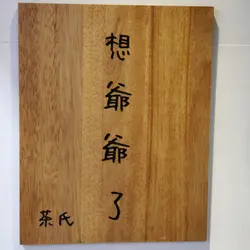 想爺爺了
茶氏